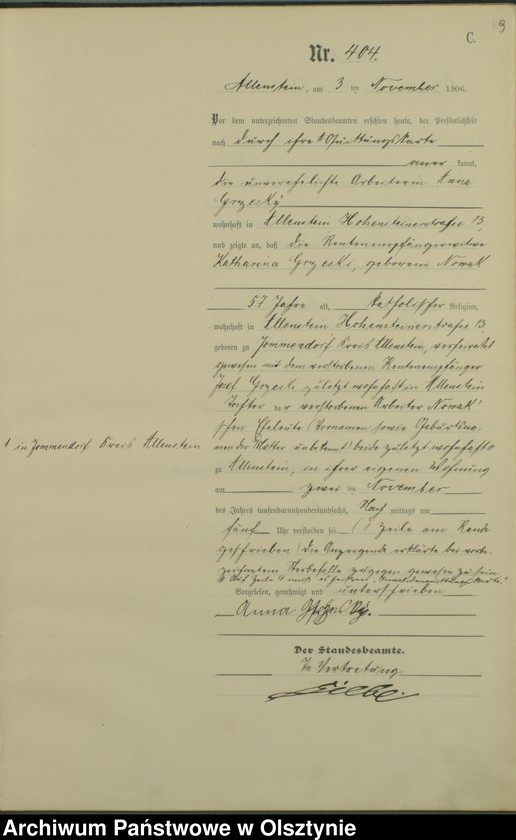 9
C.
Nr. 404.
Allenstein, am 3 ten November 1906.
Vor dem unterzeichneten Standesbeamten erschien heute, der Persönlichkeit
nach durch ihre Quittungskarte
aner kannt,
die unverehelichte Arbeiterin Anna
Grzeski
wohnhaft in Allenstein Hohensteinerstraße 13,
und zeigte an, daß die Rentenempfängerwitwe
Katharina Grzeski, geborene Nowak
57 Jahre alt, katholischer Religion,
wohnhaft in Allenstein Hohensteinerstraße 13,
geboren zu Jommendorf Kreis Allenstein, verheiratet
gewesen mit dem verstorbenen Rentenempfänger
Josef Grzeski zuletzt wohnhaft in Allenstein
Tochter der verstorbenen Arbeiter Nowak'
schen Eheleute (Vornamen sowie Geburtsna-
1 in Jommendorf Kreis Allenstein
men der Mutter unbekannt) beide zuletzt wohnhaft
zu Allenstein, in ihrer eigenen Wohnung
am zwei ten November
des Jahres tausendneunhundertundsechs, Nach mittags um
fünf Uhr verstorben sei (1 Zeile am Rande
geschrieben) Die Anzeigende erklärte bei vorbe-
zeichnetem Sterbefalle zugegen gewesen zu sein
Zeile 4 muß es heißen „Invalidenquittungskarte."
Vorgelesen, genehmigt und unterschrieben
Anna
Der Standesbeamte.
In Vertretung
Archiwum Państwowe w Olsztynie